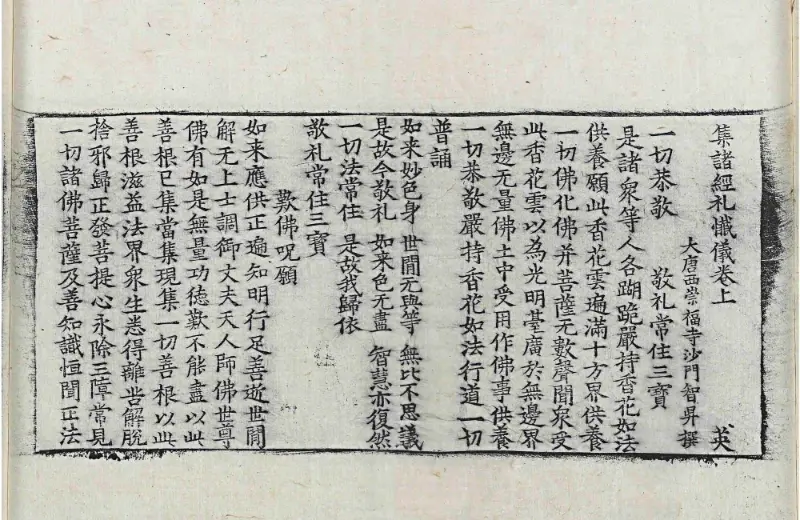 集諸經礼懺儀卷上 英
大唐西崇福寺沙門智昇撰
一切恭敬 敬礼常住三寶
是諸衆等人各蹋跪嚴持香花如法
供養願此香花雲遍滿十方界供養
一切佛化佛并菩薩无數聲聞衆受
此香花雲以為光明臺廣於無邊界
無邊无量佛土中受用作佛事供養
一切恭敬嚴持香花如法行道一切
普誦
如來妙色身 世閒无與等 無比不思議
是故今敬礼 如來色无盡 智慧亦復然
一切法常住 是故我歸依
敬礼常住三寶
歎佛呪願
如來應供正遍知明行足善逝世閒
解无上士調御丈夫天人師佛世尊
佛有如是無量功德歎不能盡以此
善根已集當集現集一切善根以此
善根滋益法界衆生悉得離苦解脫
捨邪歸正發菩提心永除三障常見
一切諸佛菩薩及善知識恒聞正法